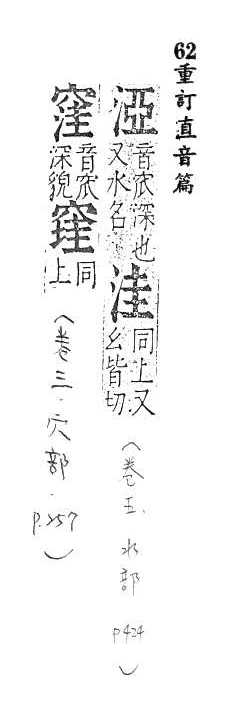 62重訂直音篇
音窊深也又水名 洼 同上又幺皆切 (卷五.水部 p424)
窪 音窊深貌 同上 (卷三.穴部.p.257)